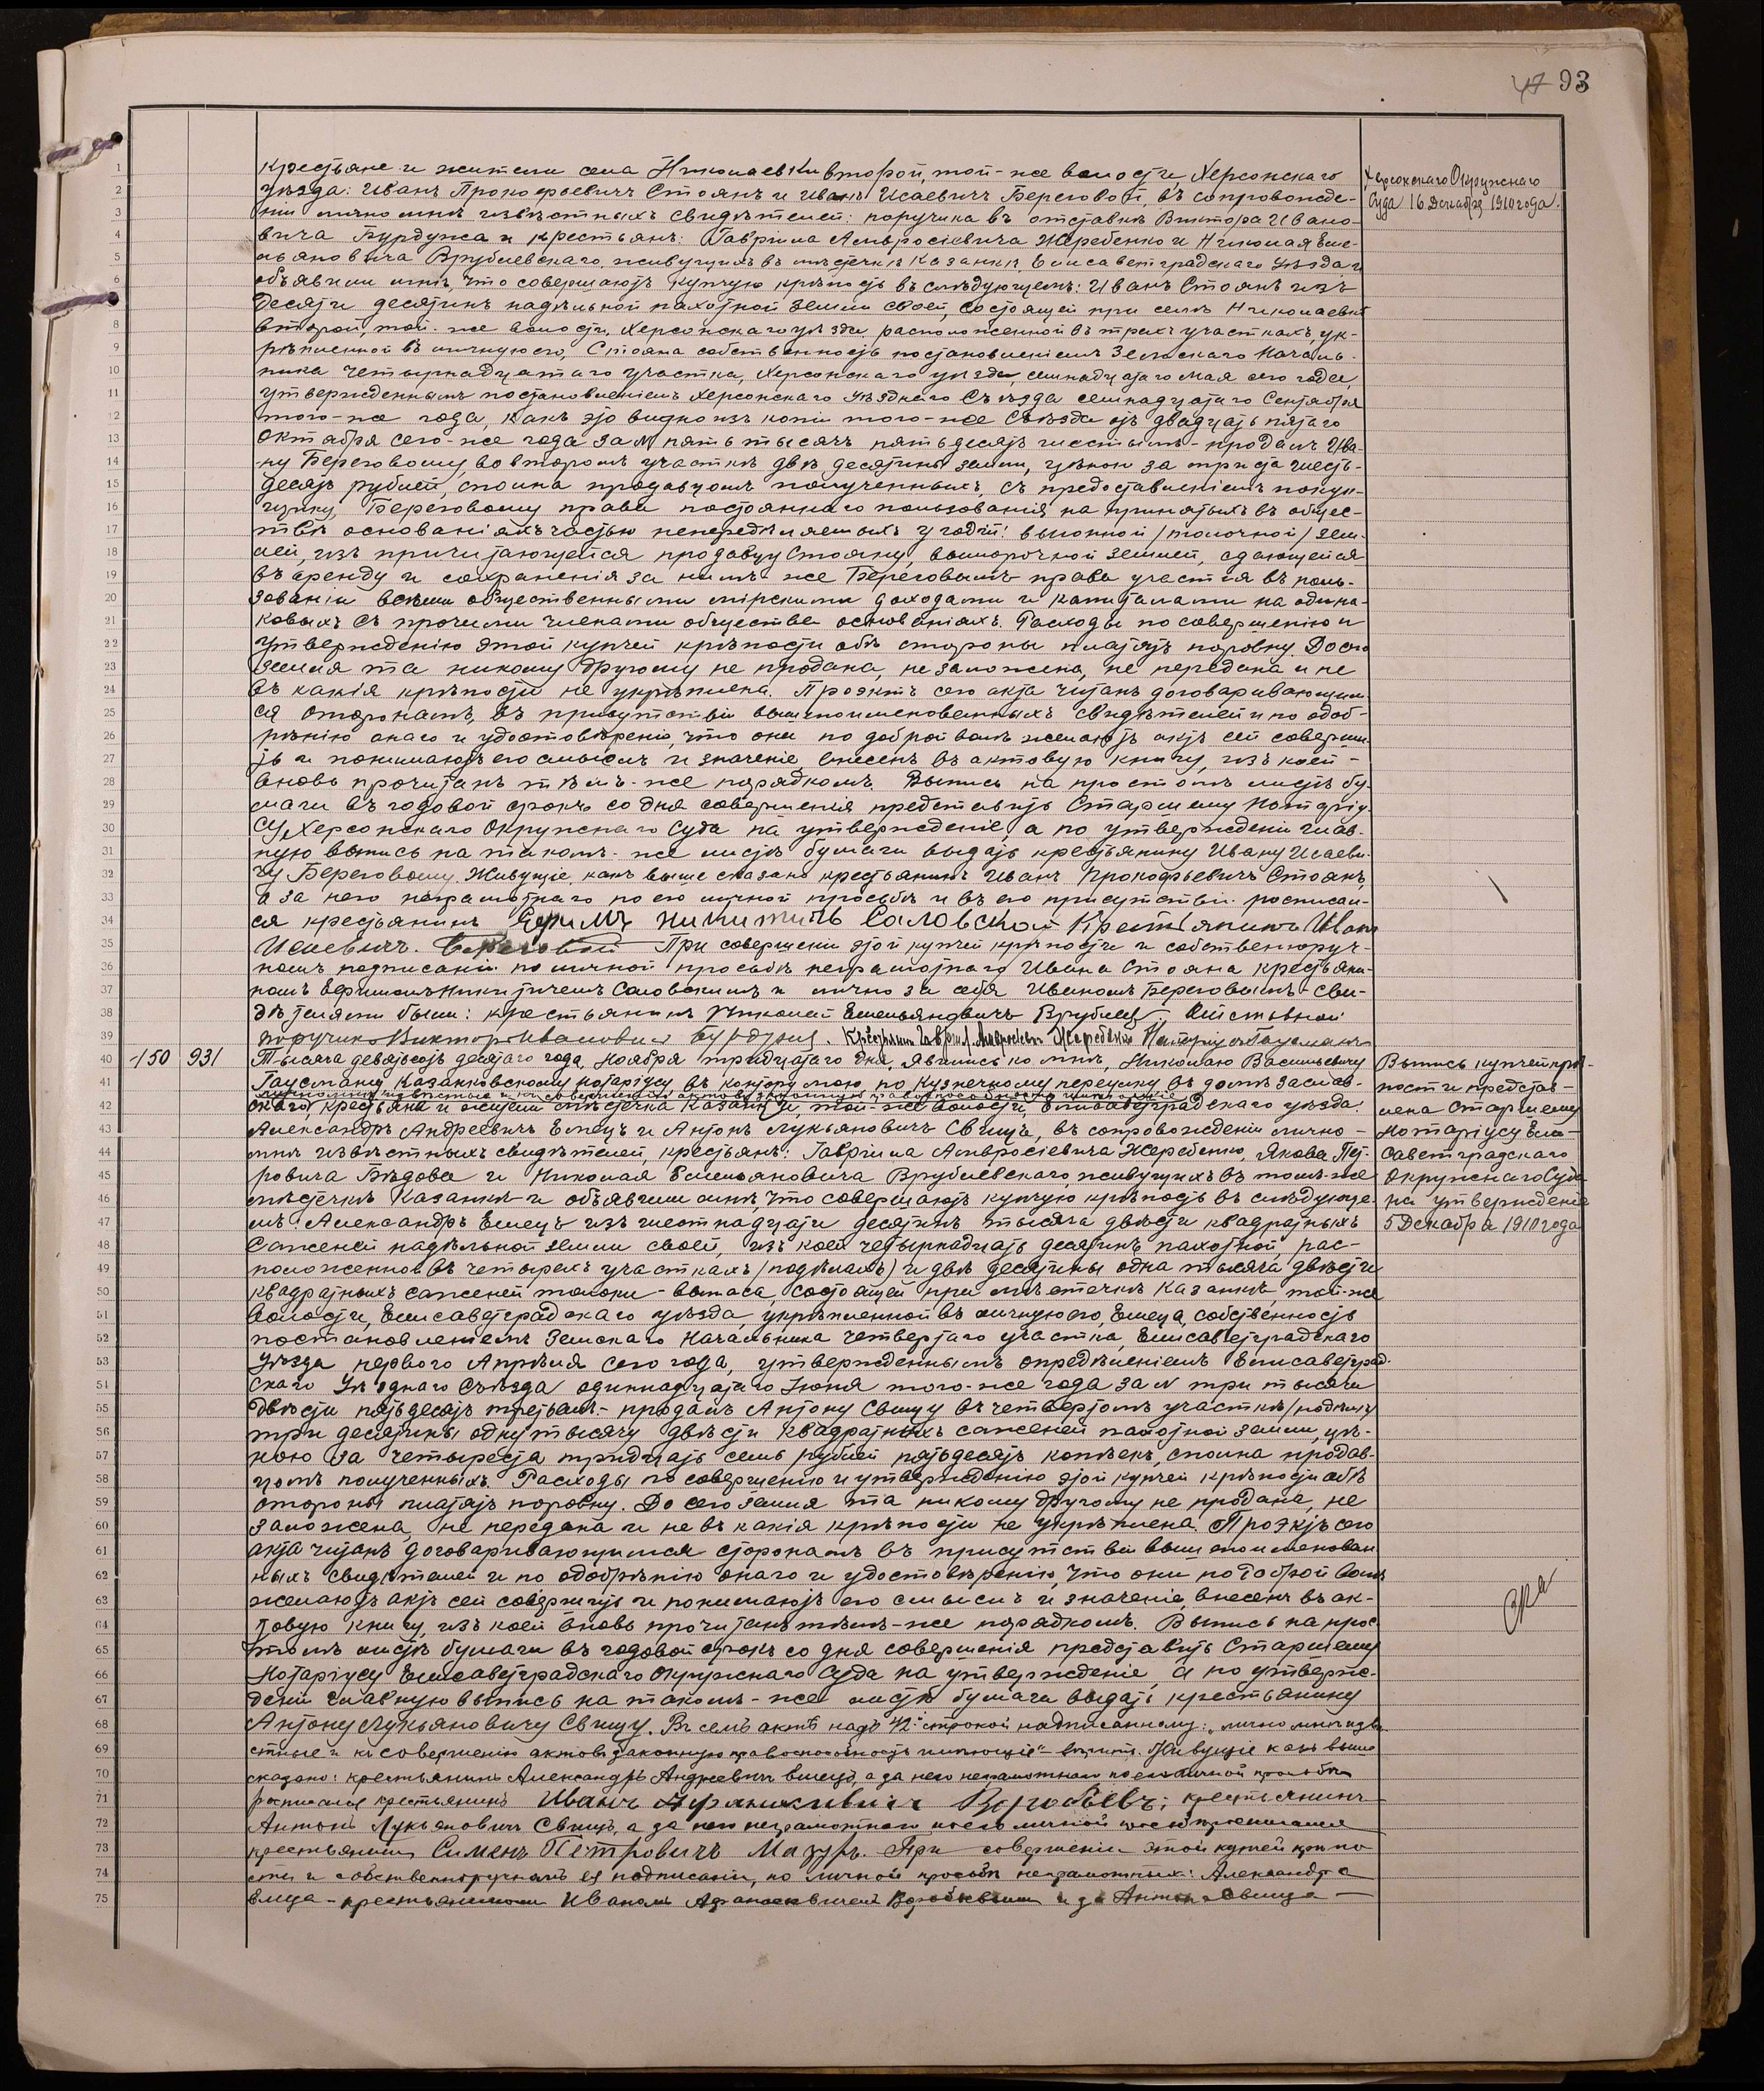 47 93
крестьяне и жители села Николаевки второй, той-же волости Херсонскаго
Херсонскаго Окружнаго
уѣзда: Иванъ Прокофьевичъ Стоянъ и Иванъ Исаевичъ Береговой, въ сопровожде-
Суда 16 Декабря 1910 года.
ніи лично мнѣ извѣстныхъ свидѣтелей: поручика въ отставкѣ Виктора Ивано-
вича Бурдужа и крестьянъ: Гавріила Амвросіевича Жеребенко и Николая Еме-
льяновича Врублевскаго, живущихъ въ мѣстечкѣ Казанкѣ, Елисаветградскаго уѣзда и
объявили мнѣ, что совершаютъ купчую крѣпость въ слѣдующемъ: Иванъ Стоянъ изъ
десяти десятинъ надѣльной пахотной земли своей, состоящей при селѣ Николаевкѣ
второй, той-же волости, Херсонскаго уѣзда, расположенной въ трехъ участкахъ, ук-
рѣпленной въ личную его, Стояна собственность постановленіемъ Земскаго Началь-
ника четырнадцатаго участка, Херсонскаго уѣзда, семнадцатаго мая сего года,
утвержденнымъ постановленіемъ Херсонскаго Уѣзднаго Съѣзда семнадцатаго Сентября
того-же года, какъ это видно изъ копіи того-же Съѣзда отъ двадцать пятаго
Октября сего-же года за № пять тысячъ пятьдесятъ шестымъ - продалъ Ива-
ну Береговому, во второмъ участкѣ двѣ десятины земли, цѣною за триста шесть-
десятъ рублей, сполна продавцомъ полученныхъ, съ предоставленіемъ покуп-
щику, Береговому права постояннаго пользованія на принятыхъ въ общес-
твѣ основаніяхъ частью непередѣляемыхъ угодій: выгонной /толочной/ зем-
лей, изъ причитающейся продавцу Стояну, выморочной землей, сдающейся
въ аренду и сохраненія за нимъ-же Береговымъ права участія въ поль-
зованіи всѣми общественными мірскими доходами и капиталами на одина-
ковыхъ съ прочими членами общества основаніяхъ. Расходы по совершенію и
утвержденію этой купчей крѣпости обѣ стороны платятъ поровну. До сего
земля та никому другому не продана, не заложена, не передана и не
въ какія крѣпости не укрѣплена. Проэктъ сего акта читанъ договаривающим-
ся сторонамъ, въ присутствіи вышепоименованныхъ свидѣтелей и по одоб-
рѣнію онаго и удостовѣренію, что они по доброй волѣ желаютъ актъ сей соверши-
ть и понимаютъ его смыслъ и значеніе, внесенъ въ актовую книгу, изъ коей -
вновь прочитанъ тѣмъ-же порядкомъ. Выпись на простомъ листѣ бу-
маги въ годовой срокъ со дня совершенія представить Старшему Нотаріу-
су Херсонскаго Окружнаго Суда на утвержденіе, а по утвержденіи глав-
ную выпись на такомъ-же листѣ бумаги выдать крестьянину Ивану Исаеви-
чу Береговому. Живущіе, какъ выше сказано крестьянинъ Иванъ Прокофьевичъ Стоянъ,
а за него неграмотнаго по его личной просьбѣ и въ его присутствіи росписал-
ся крестьянинъ Ефимъ Никитичъ Саловской Крестьянинъ Иванъ
Исаевичъ Береговой При совершеніи этой купчей крѣпости и собственноруч-
номъ подписаніи по личной просьбѣ неграмотнаго Ивана Стояна крестьяни-
номъ Ефимомъ Никитичемъ Саловскимъ и лично за себя Иваномъ Береговымъ - Сви-
дѣтелями были: крестьянинъ Николай Емельяновичъ Врублев Отставной
поручикъ Викторъ Ивановичъ Бурдужа. Крестьянин Гавріил Амвросіевъ Жеребенко Нотаріусъ Гаусманъ
150 931 Тысяча девятьсотъ десятаго года, Ноября тридцатаго дня, явились ко мнѣ, Николаю Васильевичу
Выпись купчей крѣ-
Гаусману, Казанковскому нотаріусу, въ контору мою, по Кузнечному переулку въ домѣ Заслав-
пости представ-
лично мнѣ извѣстные и къ совершенію актовъ законную правоспособность имѣющіе
скаго крестьяне и жители мѣстечка Казанки, той-же волости, Елисаветградскаго уѣзда:
лена Старшему
Александръ Андреевичъ Емецъ и Антонъ Лукьяновичъ Свищъ, въ сопровожденіи лично -
Нотаріусу Ели-
мнѣ извѣстныхъ свидѣтелей, крестьянъ: Гавріила Амвросіевича Жеребенко, Якова Пет-
саветградскаго
ровича Бѣдова и Николая Емельяновича Врублевскаго, живущихъ въ томъ-же
Окружнаго Суда
мѣстечкѣ Казанкѣ и объявили мнѣ, что совершаютъ купчую крѣпость въ слѣдующе-
на утвержденіе
мъ: Александръ Емецъ изъ шестнадцати десятинъ тысяча двѣсти квадратныхъ
5 Декабря 1910 года
саженей надѣльной земли своей, изъ коей четырнадцать десятинъ пахотной, рас-
положенной въ четырехъ участкахъ /подѣлахъ/ и двѣ десятины одна тысяча двѣсти
квадратныхъ саженей толоки - выпаса, состоящей при мѣстечкѣ Казанкѣ, той-же
волости, Елисаветградскаго уѣзда, укрѣпленной въ личную его, Емеца, собственность
постановленіемъ Земскаго Начальника четвертаго участка, Елисаветградскаго
уѣзда перваго Апрѣля сего года, утвержденнымъ опредѣленіемъ Елисаветград-
скаго Уѣзднаго Съѣзда одиннадцатаго Іюня того-же года за № три тысячи
двѣсти пятьдесятъ третьимъ - продалъ Антону Свищу въ четвертомъ участкѣ /подѣлѣ/
три десятины одну тысячу двѣсти квадратныхъ саженей пахотной земли, цѣ-
ною за четыреста тридцать семь рублей пятьдесятъ копѣекъ, сполна продав-
цомъ полученныхъ. Расходы по совершенію и утвержденію этой купчей крѣпости обѣ
стороны платятъ поровну. До сего земля та никому другому не продана, не
заложена, не передана и не въ какія крѣпости не укрѣплена. Проэктъ сего
акта читанъ договаривающимся сторонамъ въ присутствіи вышепоименован-
ныхъ свидѣтелей и по одобрѣнію онаго и удостовѣренію, что они по доброй волѣ
желаютъ актъ сей совершить и понимаютъ его смыслъ и значеніе, внесенъ въ ак-
товую книгу, изъ коей вновь прочитанъ тѣмъ-же порядкомъ. Выпись на прос-
томъ листѣ бумаги въ годовой срокъ со дня совершенія представить Старшему
Нотаріусу Елисаветградскаго Окружнаго Суда на утвержденіе, а по утверж-
деніи главную выпись на такомъ-же листѣ бумаги выдать крестьянину
Антону Лукьяновичу Свищу. Въ семъ актѣ надъ 42й строкой надписанному: "лично мнѣ извѣ-
стные и къ совершенію актовъ законную правоспособность имѣющіе" - вѣрить. Живущіе какъ выше
сказано: крестьянинъ Александръ Андреевичъ Емецъ, а за него неграмотнаго по его личной просьбѣ
росписался крестьянинъ Иванъ Афанасиевичъ Воробьевъ; крестьянинъ
Антонъ Лукьяновичъ Свищъ, а за него неграмотнаго по его личной просьбѣ росписался
крестьянинъ Сименъ Петровичъ Мазуръ. При совершеніи этой купчей крѣпо-
сти и собственноручномъ ея подписаніи, по личной просьбѣ неграмотныхъ: Александра
Емеца - крестьяниномъ Иваномъ Афанасьевичемъ Воробьевымъ и за Антона Свища -